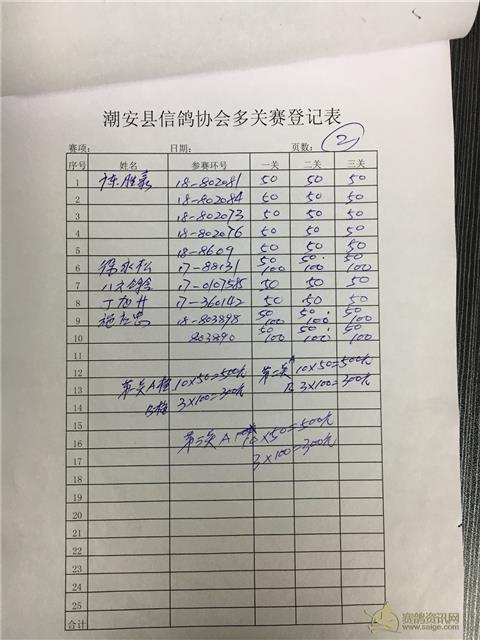 潮安县信鸽协会多关赛登记表
赛项: 日期: 页数: 2
序号 姓名 参赛环号 一关 二关 三关
1 陈胜豪 18-802081 50 50 50
2 18-802084 50 50 50
3 18-802073 50 50 50
4 18-802076 50 50 50
5 18-8609 50 50 50
6 徐永松 17-88131 50 100 50 100 50 100
7 17-0107585 50 50 50
8 丁旭升 17-360142 50 50 50
9 18-803898 50 100 50 100 50 100
10 803890 50 100 50 100 50 100
11
12
13 第一关A组 10×50=500元 第二关A 10×50=500元
14 B组 3×100=300元 B 3×100=300元
15
16 第三关A 10×50=500元
17 3×100=300元
18
19
20
21
22
23
24
25
合计
赛鸽资讯网
www.saige.com